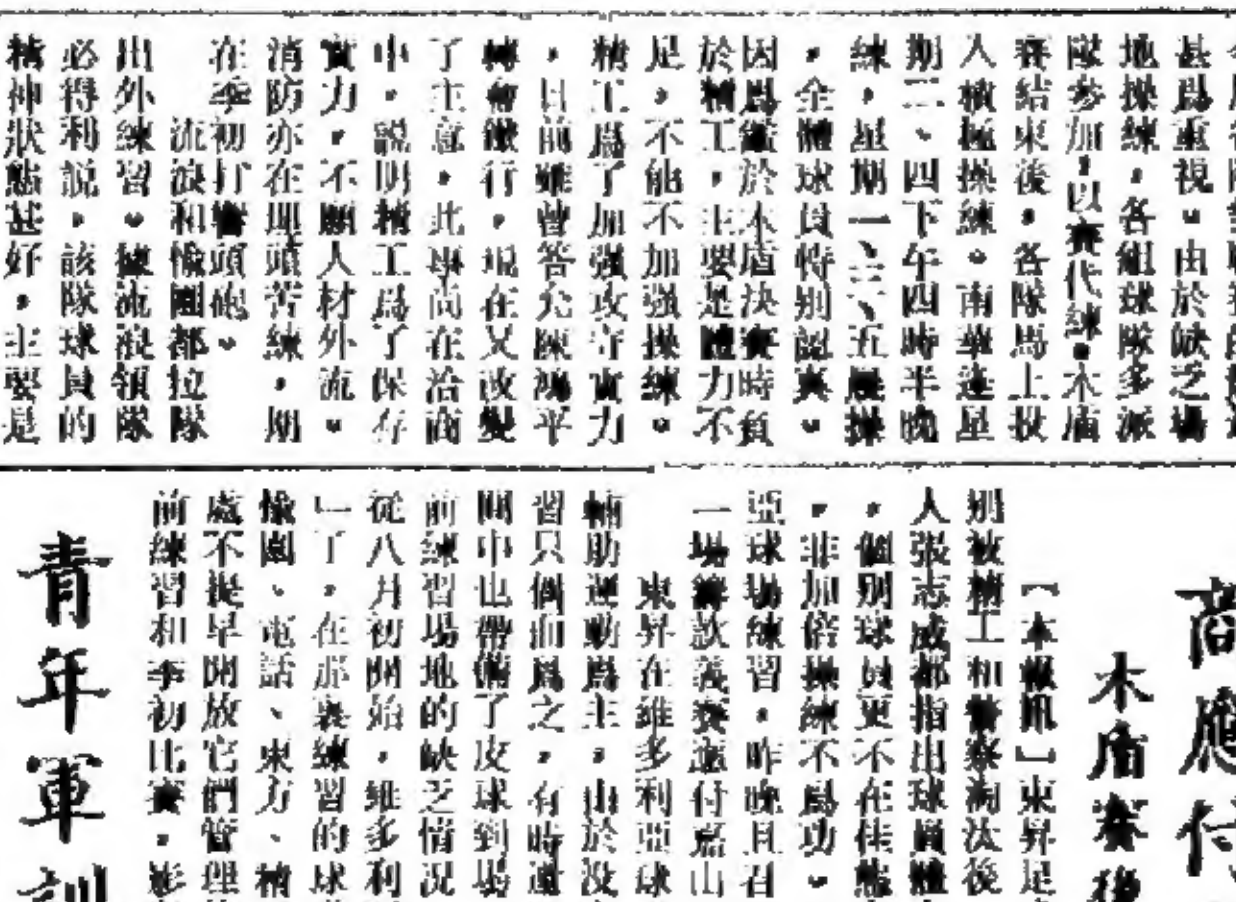 甚爲重視。由於缺乏場
地操練,各組球隊多派
隊參加,以賽代練。木盾
賽結束後,各隊馬上投
入積極操練。南華逢星
期二、四下午四時半晚
練,星期一、三、五晨操
,全體球員特別認真。
因爲鑑於木盾決賽時負
於精工,主要是體力不
足,不能不加強操練。
精工爲了加强攻守實力
,目前雖曾答允陳鴻平
轉會愉行,現在又改變
了主意,此事尚在洽商
中,説明精工爲了保存
實力,不願人材外流。
消防亦在埋頭苦練,期
在季初打響頭砲。
流浪和愉園都拉隊
出外練習。據流浪領隊
必得利説,該隊球員的
精神狀態甚好,主要是
商應付
木盾賽後
【本報訊】東昇足
別被精工和警察淘汰後
人張志威都指出球員體
,個別球員更不在佳態
,非加倍操練不爲功。
亞球場練習,昨晚且召
一場籌款義賽應付嘉山
東昇在維多利亞球
輔助運動爲主,由於没
習只個而爲之,有時還
間中也帶備了皮球到場
前練習場地的缺乏情况
從八月初開始,維多利
」了,在那裏練習的球
愉園、電話、東方、精
處不提早開放它們管理
前練習和季初比賽,影
青年軍訓